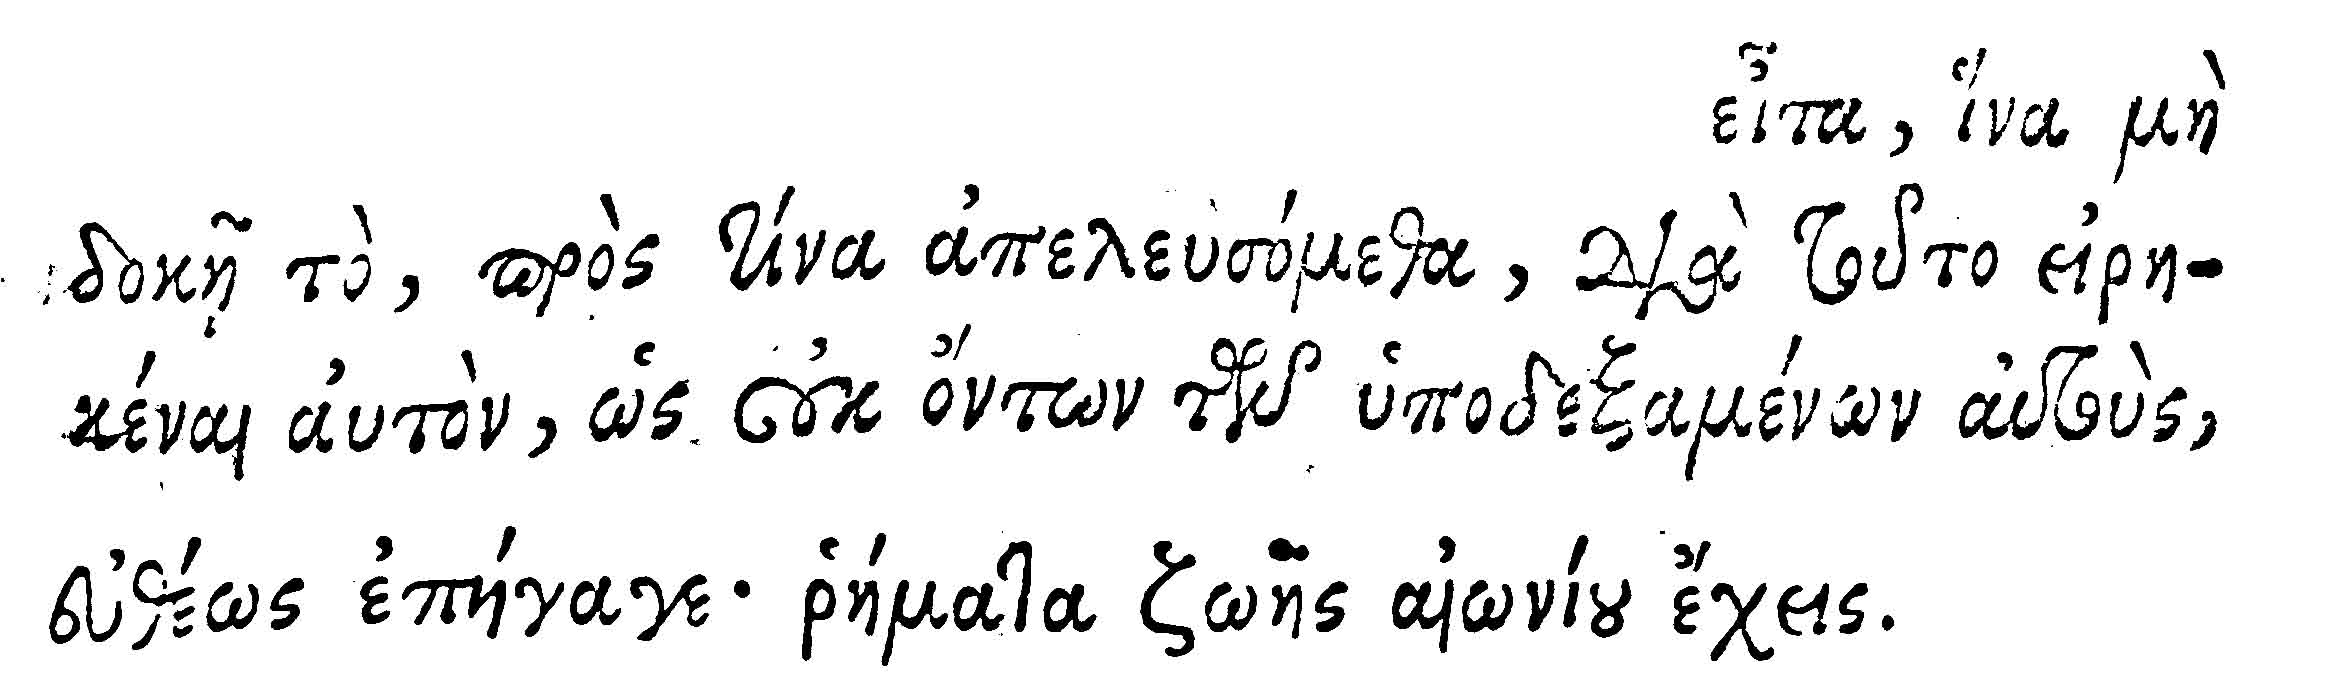 εἶτα, ἵνα μὴ
δοκῇ τὸ, πρὸς τίνα ἀπελευσόμεθα, διὰ τοῦτο εἰρη-
κέναι αὐτὸν, ὡς οὐκ ὄντων τῶν ὑποδεξαμένων αὐτοὺς,
εὐθέως ἐπήγαγε· ῥήματα ζωῆς αἰωνίου ἔχεις.